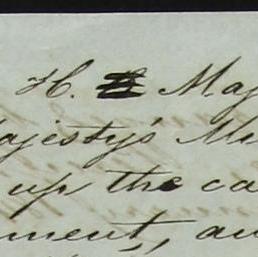 H. Maj
ajesty's M
up the ca
ment, au